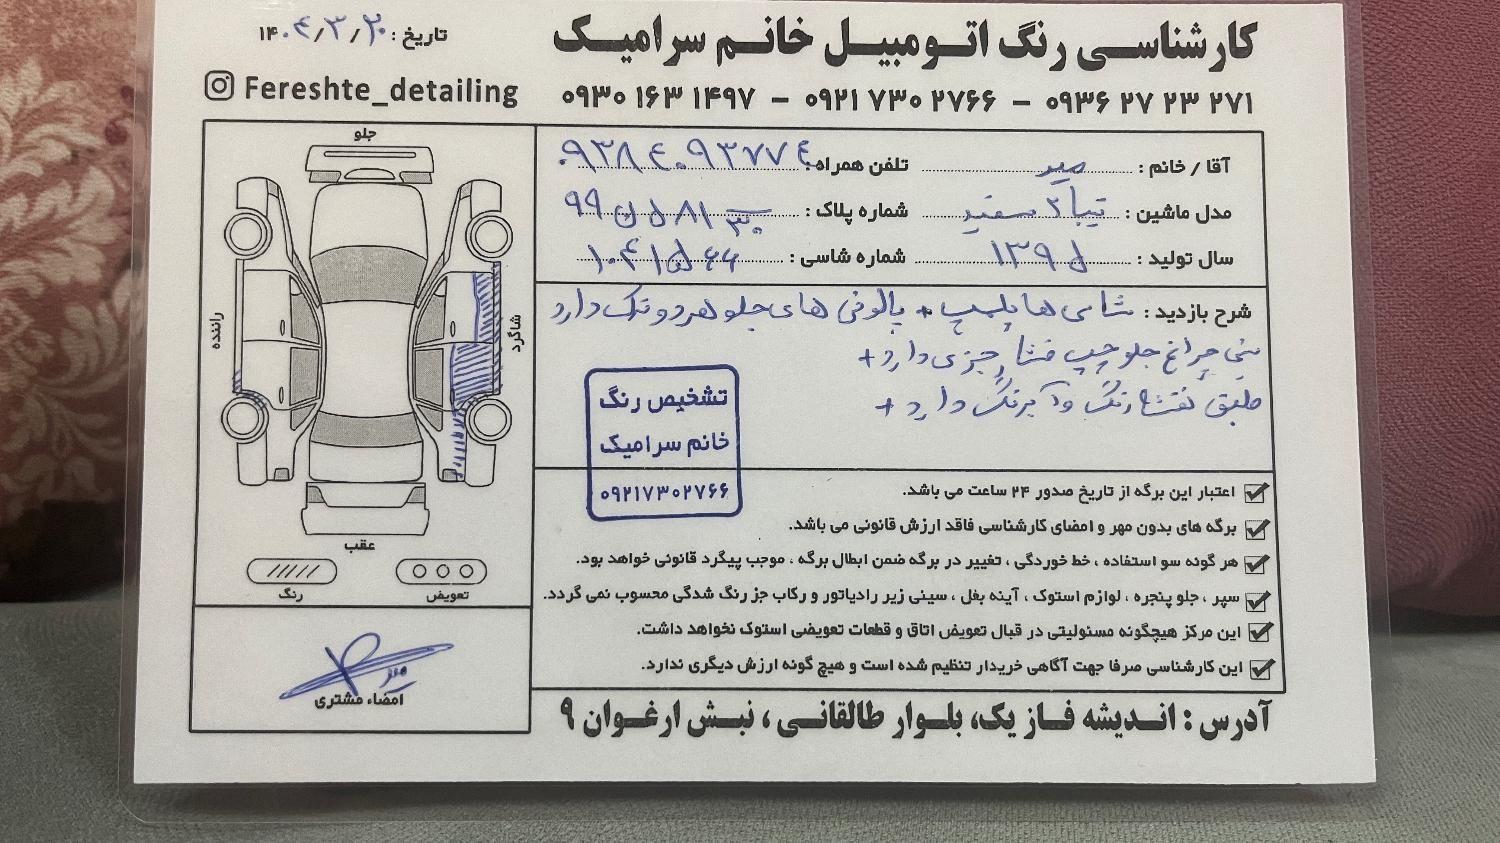 کارشناسی رنگ اتومبیل خانم سرامیک
تاریخ : ۱۴۰۴/۳/۲۰
۰۹۳۶ ۲۷ ۲۳ ۲۷۱ – ۰۹۲۱ ۷۳۰ ۲۷۶۶ – ۰۹۳۰ ۱۶۳ ۱۴۹۷
Fereshte_detailing
آقا / خانم :
تلفن همراه: ۰۹۳۸۴۰۹۳۷۷۴
مدل ماشین : تیبا ۲ سفید
شماره پلاک :
سال تولید :
شماره شاسی :
شرح بازدید : شاسی ها پلمپ + پالونی های جلو هر دو ترک دارد
سینی چراغ جلو چپ فشار جزی دارد +
طبق نقشه رنگ و آبرنگ دارد +
تشخیص رنگ
خانم سرامیک
۰۹۲۱۷۳۰۲۷۶۶
جلو
راننده
شاگرد
عقب
رنگ
تعویض
امضاء مشتری
اعتبار این برگه از تاریخ صدور ۲۴ ساعت می باشد.
برگه های بدون مهر و امضای کارشناسی فاقد ارزش قانونی می باشد.
هر گونه سو استفاده ، خط خوردگی ، تغییر در برگه ضمن ابطال برگه ، موجب پیگرد قانونی خواهد بود.
سپر ، جلو پنجره ، لوازم استوک ، آینه بغل ، سینی زیر رادیاتور و رکاب جز رنگ شدگی محسوب نمی گردد.
این مرکز هیچگونه مسئولیتی در قبال تعویض اتاق و قطعات تعویضی استوک نخواهد داشت.
این کارشناسی صرفا جهت آگاهی خریدار تنظیم شده است و هیچ گونه ارزش دیگری ندارد.
آدرس : اندیشه فاز یک، بلوار طالقانی ، نبش ارغوان ۹